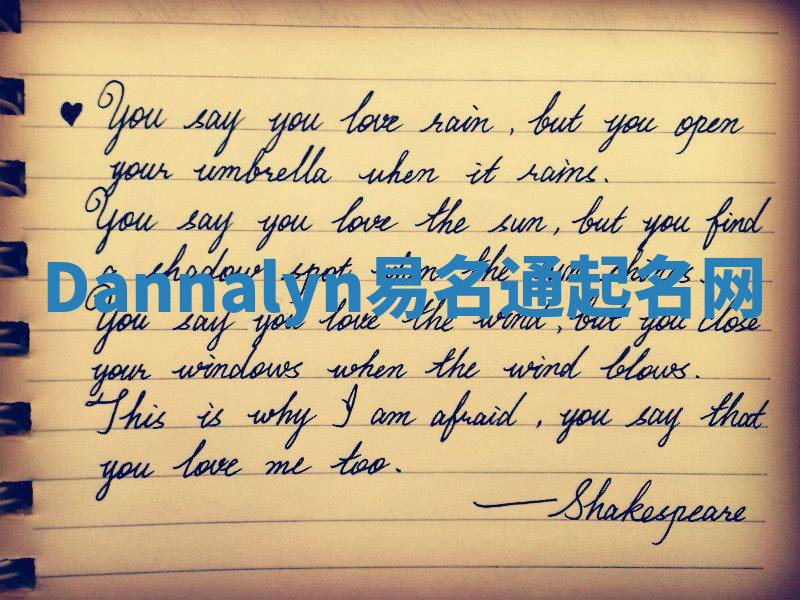 ♥ You say you love rain, but you open
your umbrella when it rains.
You say you love the sun, but you find
a shadow spot when the sun shines.
Dannalyn易名通起名网
You say you love the wind, but you close
your windows when the wind blows.
This is why I am afraid, you say that
you love me too.
—Shakespeare